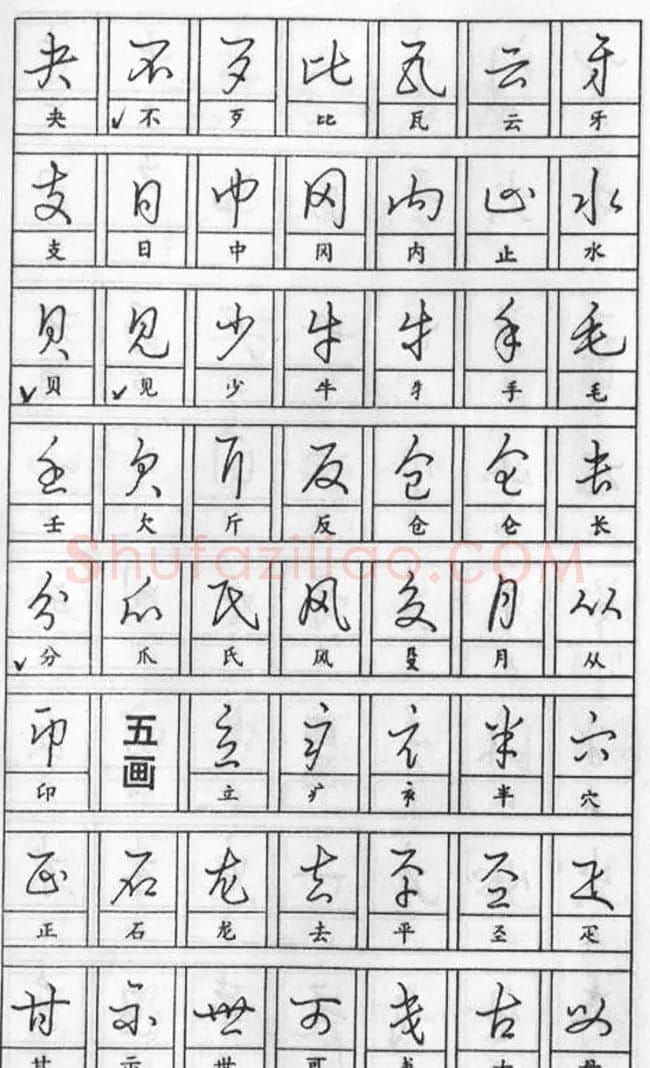 夬 不 歹 比 瓦 云 牙
夬 不 歹 比 瓦 云 牙
支 日 中 冈 内 止 水
支 日 中 冈 内 止 水
贝 见 少 牛 牜 手 毛
贝 见 少 牛 牜 手 毛
壬 欠 斤 反 仓 仑 长
壬 欠 斤 反 仓 仑 长
Shufaziliao.COM
分 爪 氏 风 殳 月 从
分 爪 氏 风 殳 月 从
印 五画 立 疒 半 穴
印 立 疒 半 穴
正 石 龙 去 平 圣
正 石 龙 去 平 圣
甘 示 世 可 古
甘 示 世 可